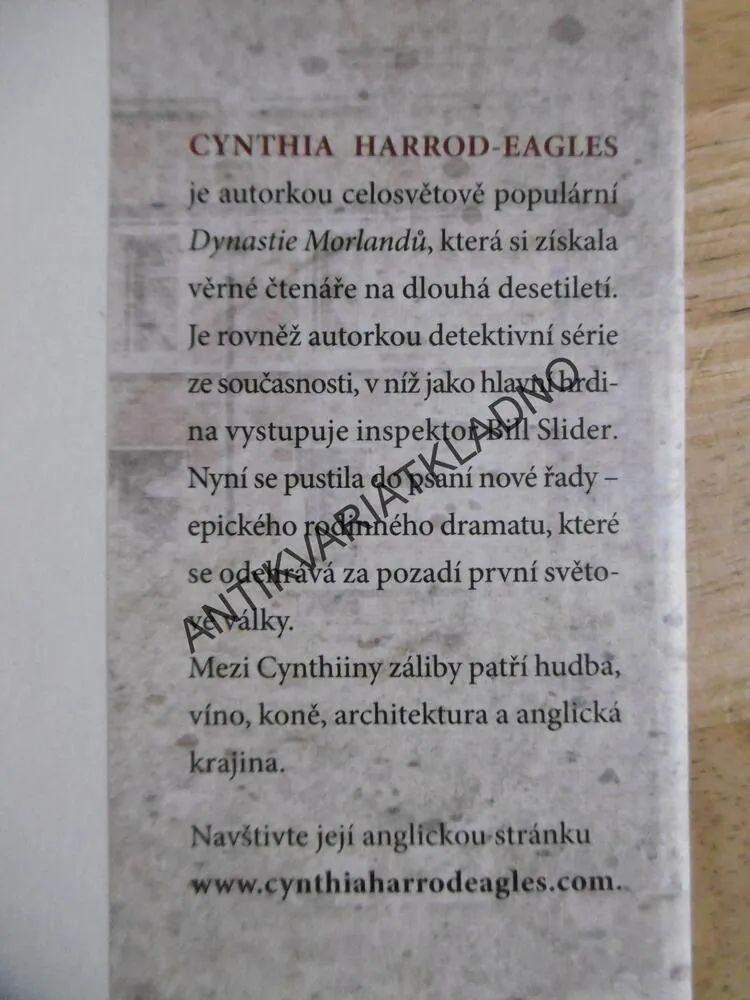 CYNTHIA HARROD-EAGLES
je autorkou celosvětově populární
Dynastie Morlandů, která si získala
věrné čtenáře na dlouhá desetiletí.
Je rovněž autorkou detektivní série
ze současnosti, v níž jako hlavní hrdi-
na vystupuje inspektor Bill Slider.
Nyní se pustila do psaní nové řady –
epického rodinného dramatu, které
se odehrává za pozadí první světo-
vé války.
Mezi Cynthiiny záliby patří hudba,
víno, koně, architektura a anglická
krajina.
Navštivte její anglickou stránku
www.cynthiaharrodeagles.com.
ANTIKVARIATKLADNO